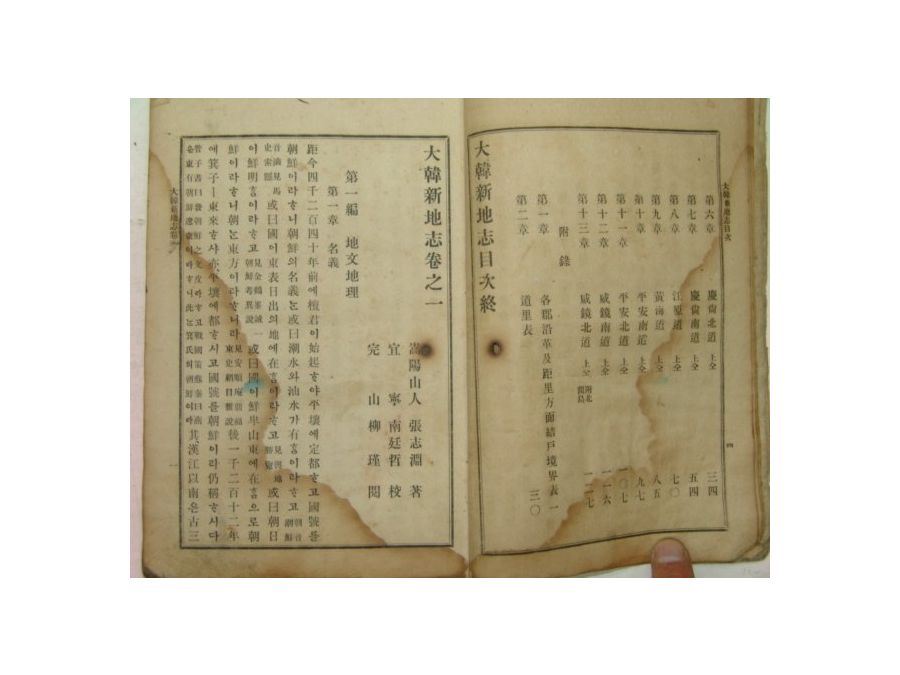 大韓新地志目次
第六章 慶尙北道 上仝 三四
第七章 慶尙南道 上仝 五四
第八章 江原道 上仝 七〇
第九章 黃海道 上仝 八五
第十章 平安南道 上仝 九七
第十一章 平安北道 上仝 一〇七
第十二章 咸鏡南道 上仝 一一六
第十三章 咸鏡北道 上仝 附北間島 一二七
附錄
第一章 各郡沿革及距里方面結戶境界表 一
第二章 道里表 三〇
大韓新地志目次終
四
大韓新地志卷之一
嵩陽山人 張志淵 著
宜寧 南廷哲 校
完山 柳瑾 閱
第一編 地文地理
第一章 名義
距今四千二百四十年前에檀君이始起ᄒᆞ야平壤에定都ᄒᆞ고國號를
朝鮮이라ᄒᆞ니朝鮮의名義ᄂᆞᆫ或曰潮水와汕水가有ᄒᆞᆷ이라ᄒᆞ고
或曰國이東表日出의地에在ᄒᆞᆷ이라ᄒᆞ고 或曰朝日
이鮮明ᄒᆞᆷ이라ᄒᆞ고 或曰國이鮮卑山東에在ᄒᆞᆷ으로朝
鮮이라ᄒᆞ니朝ᄂᆞᆫ東方이라ᄒᆞ니라 後一千二百十二年
에箕子ㅣ東來ᄒᆞ샤亦平壤에都ᄒᆞ시고國號를朝鮮이라仍稱ᄒᆞ시다
其漢江以南은古三
大韓新地志卷一
一